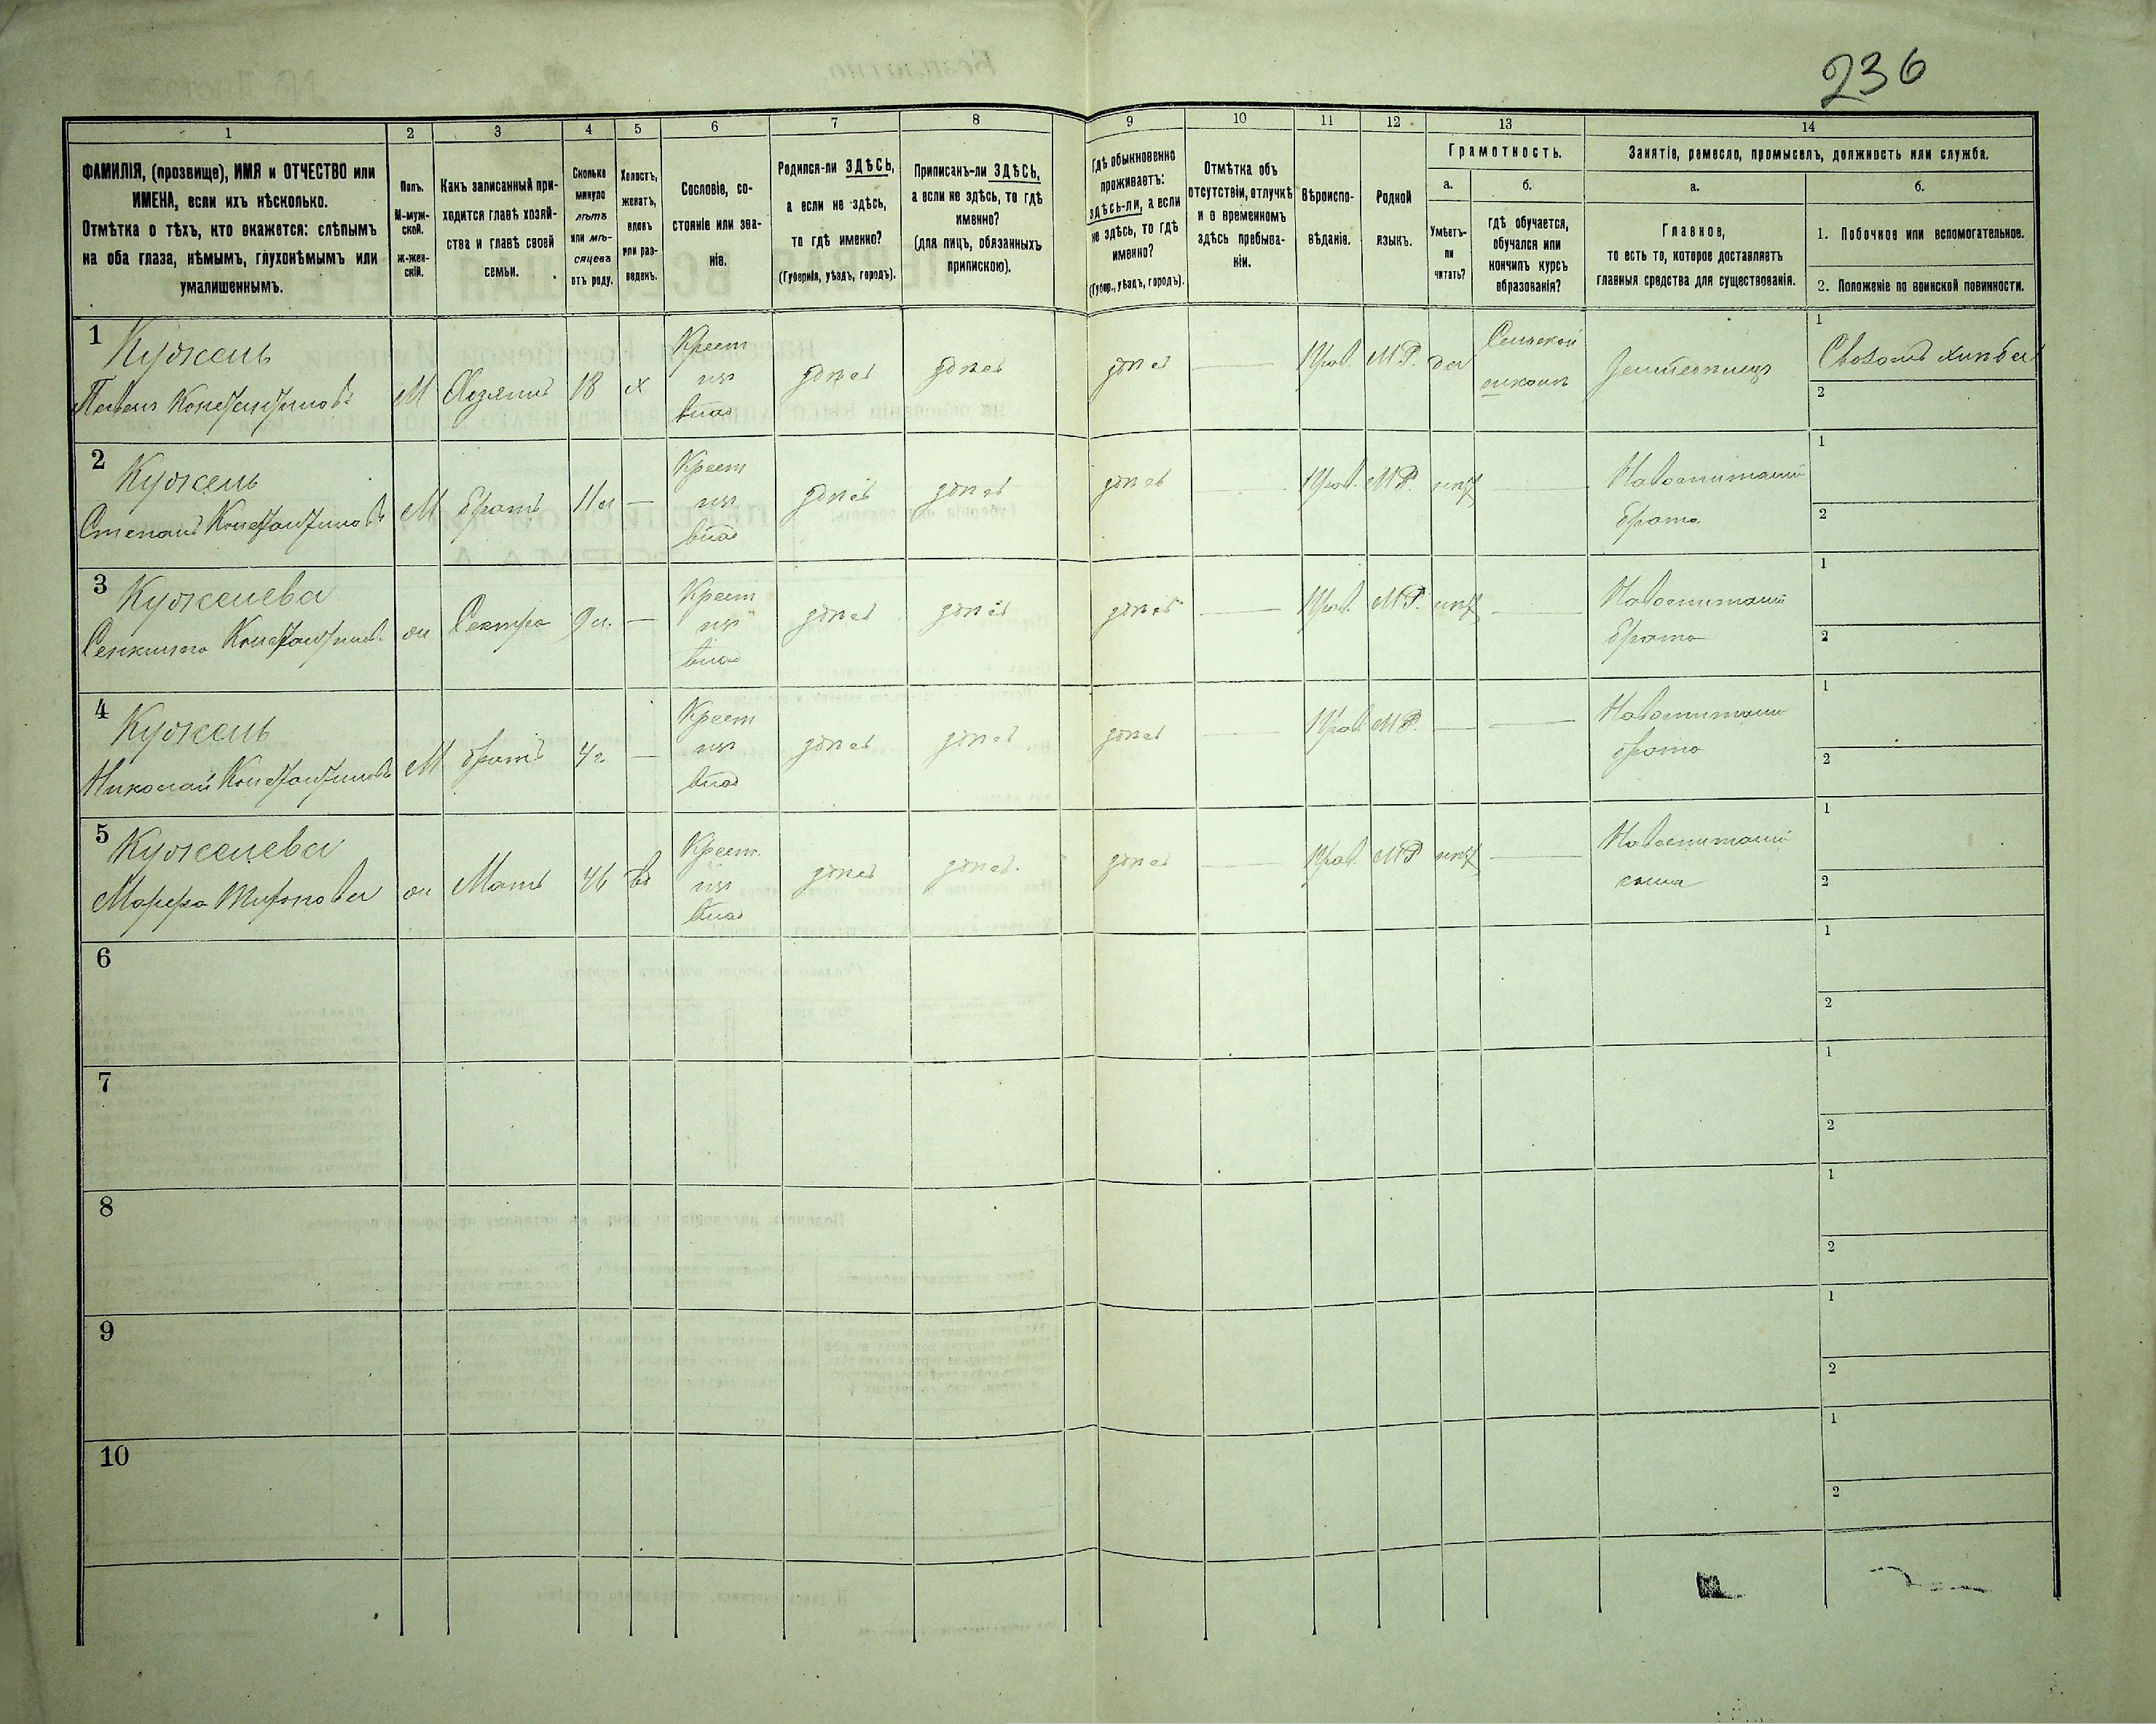 236
1 2 3 4 5 6 7 8 9 10 11 12 13 14
ФАМИЛІЯ, (прозвище), ИМЯ и ОТЧЕСТВО или
ИМЕНА, если ихъ нѣсколько.
Отмѣтка о тѣхъ, кто окажется: слѣпымъ
на оба глаза, нѣмымъ, глухонѣмымъ или
умалишеннымъ.
Полъ.
М-муж-
ской.
Ж-жен-
скій.
Какъ записанный при-
ходится главѣ хозяй-
ства и главѣ своей
семьи.
Сколько
минуло
лѣтъ
или мѣ-
сяцевъ
отъ роду.
Холостъ,
женатъ,
вдовъ
или раз-
веденъ.
Сословіе, со-
стояніе или зва-
ніе.
Родился-ли ЗДѢСЬ,
а если не здѣсь,
то гдѣ именно?
(Губернія, уѣздъ, городъ).
Приписанъ-ли ЗДѢСЬ,
а если не здѣсь, то гдѣ
именно?
(для лицъ, обязанныхъ
припискою).
Гдѣ обыкновенно
проживаетъ:
здѣсь-ли, а если
не здѣсь, то гдѣ
именно?
(Губер., уѣздъ, городъ).
Отмѣтка объ
отсутствіи, отлучкѣ
и о временномъ
здѣсь пребыва-
ніи.
Вѣроиспо-
вѣданіе.
Родной
языкъ.
Грамотность.
а.
Умѣетъ-
ли
читать?
б.
гдѣ обучается,
обучался или
кончилъ курсъ
образованія?
Занятіе, ремесло, промыселъ, должность или служба.
а.
Главное,
то есть то, которое доставляетъ
главныя средства для существованія.
б.
1. Побочное или вспомогательное.
2. Положеніе по воинской повинности.
1 Кужель Крест Сельской 1
Павелъ Константинов М Хозяинъ 18 х здѣсь здѣсь здѣсь — Прав. М.Р. да школѣ Земледѣлецъ
2
2 Кужель Крест 1
Степанъ Константинов М братъ 11 л — здѣсь здѣсь здѣсь — Прав. М.Р. нѣт — брата
2
3 Кужелева Крест 1
Константинов. Сестра 9 л. — здѣсь здѣсь здѣсь — Прав. М.Р. нѣт — брата
2
4 Кужель Крест 1
Николай Константиновъ М братъ 4 г. — здѣсь здѣсь здѣсь — Прав. М.Р. — — брата
2
5 Кужелева Крест. 1
Марфа Мать 46 вд здѣсь здѣсь. здѣсь — Прав. М.Р. нѣт — сына
2
6 1
2
7 1
2
8 1
2
9 1
2
10 1
2